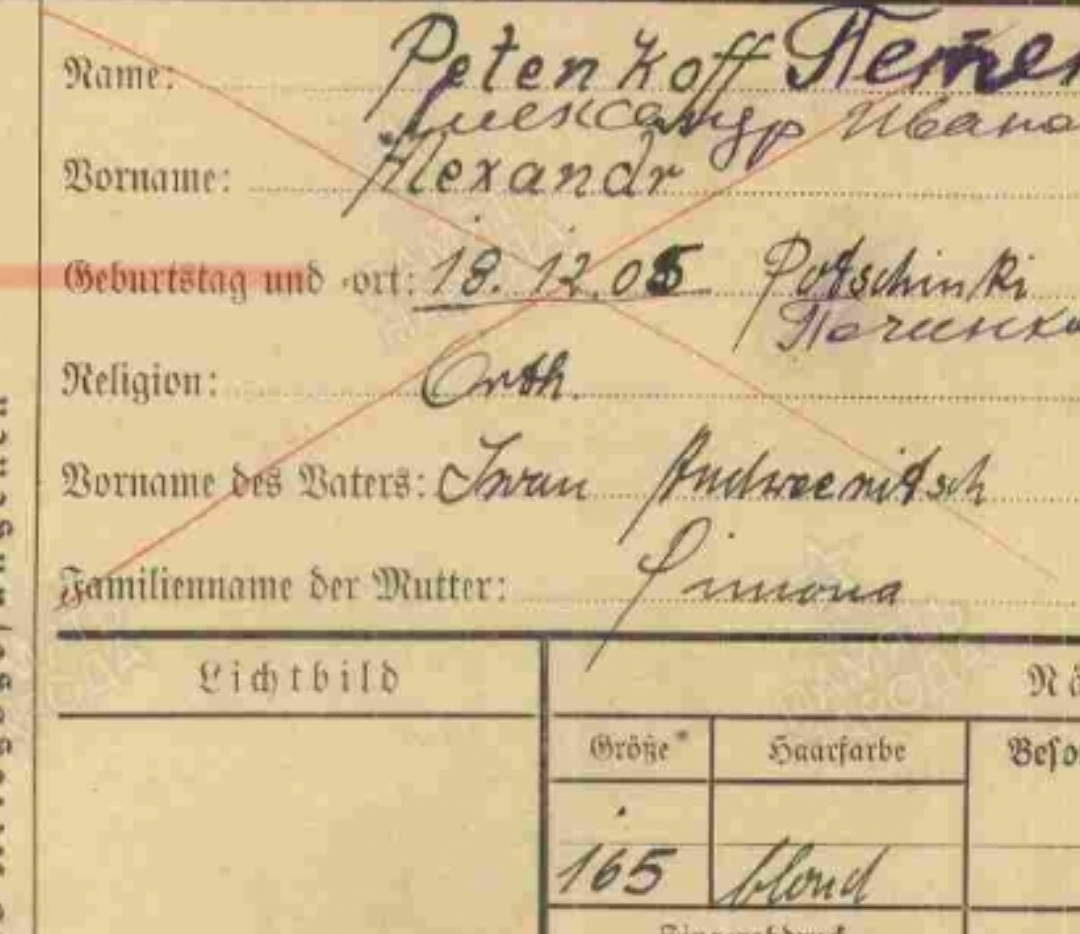 Name: Petenkoff
Александр Ивано
Vorname: Alexandr
Geburtstag und -ort: 18. 12. 05 Potschinki
Religion: Orth.
Vorname des Vaters: Iwan Andreewitsch
Familienname der Mutter: Simona
Lichtbild
Größe* Haarfarbe Beso
165 blond